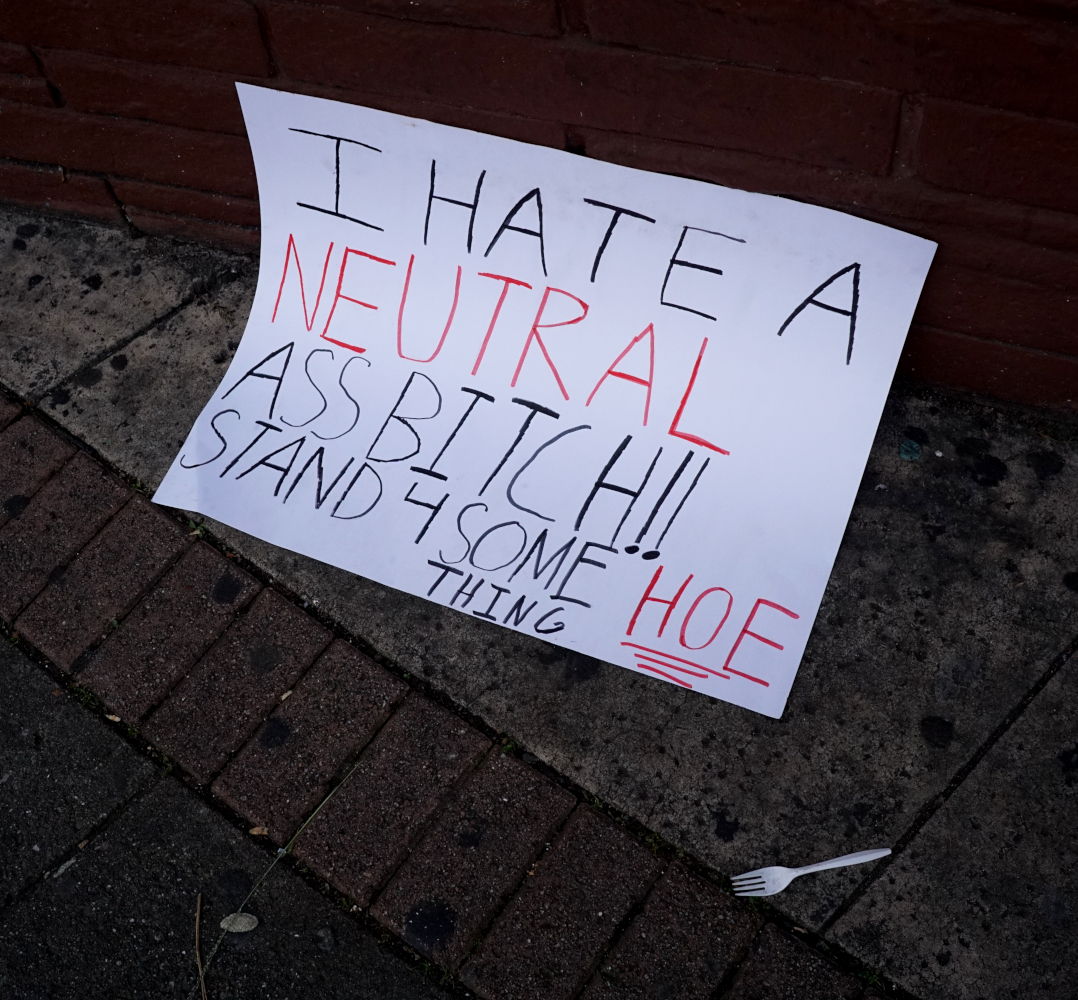 I HATE A
NEUTRAL
ASS BITCH!!
STAND 4 SOME
THING HOE